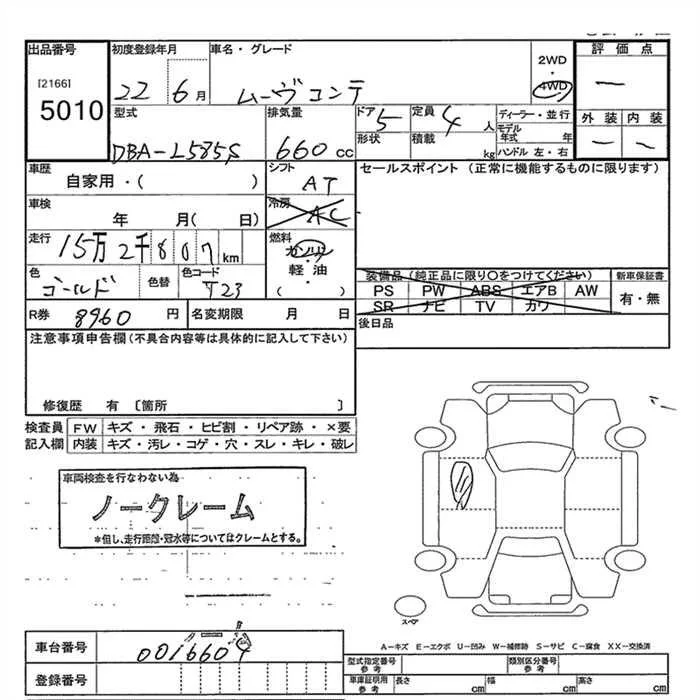 出品番号
[2166]
5010
初度登録年月
22 6月
車名・グレード
ムーヴコンテ
2WD
・
4WD
評価点
ー
外装 内装
ー ー
型式
DBA-L585S
排気量
660 cc
ドア 5
形状
定員 4 人
積載 kg
ディーラー・並行
モデル年式 年
ハンドル 左・右
車歴
自家用・( )
シフト
AT
セールスポイント (正常に機能するものに限ります)
車検
年 月( 日)
冷房
AC
走行
15万2千807km
燃料
ガソリン
・
軽油
( )
色
ゴールド
色替
色コード
T23
装備品(純正品に限り○をつけてください)
PS PW ABS エアB AW
SR ナビ TV カワ
新車保証書
有・無
R券 8960 円
名変期限 月 日
後日品
注意事項申告欄(不具合内容等は具体的に記入して下さい)
修復歴 有 〔箇所 〕
検査員
記入欄
FW キズ・飛石・ヒビ割・リペア跡・×要
内装 キズ・汚レ・コゲ・穴・スレ・キレ・破レ
車両検査を行なわない為
ノークレーム
*但し、走行距離・冠水等についてはクレームとする。
スペア
A-キズ E-エクボ U-凹み W-補修跡 S-サビ C-腐食 XX-交換済
車台番号
0016604
登録番号
型式指定番号
参考
類別区分番号
参考
車庫証明用
参考
長さ cm
幅 cm
高さ cm